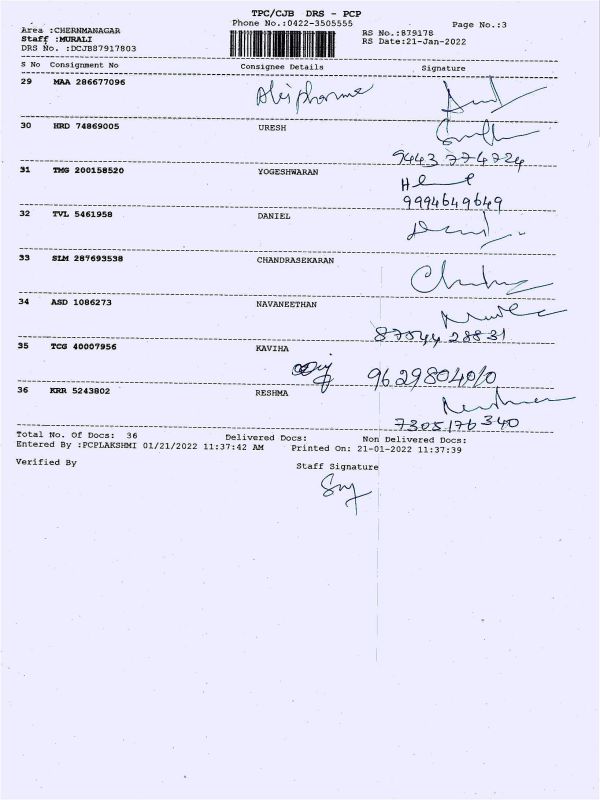 TPC/CJB DRS - PCP
Phone No.:0422-3505555
Page No.:3
Area :CHERNMANAGAR
Staff :MURALI
DRS No. :DCJB87917803
RS No.:879178
RS Date:21-Jan-2022
S No Consignment No Consignee Details Signature
29 MAA 286677096
30 HRD 74869005 URESH
9443 774724
31 TMG 200158520 YOGESHWARAN
9994649649
32 TVL 5461958 DANIEL
33 SLM 287693538 CHANDRASEKARAN
34 ASD 1086273 NAVANEETHAN
87544 28831
35 TCG 40007956 KAVIHA
9629804010
36 KRR 5243802 RESHMA
7305176340
Total No. Of Docs: 36 Delivered Docs: Non Delivered Docs:
Entered By :PCPLAKSHMI 01/21/2022 11:37:42 AM Printed On: 21-01-2022 11:37:39
Verified By Staff Signature